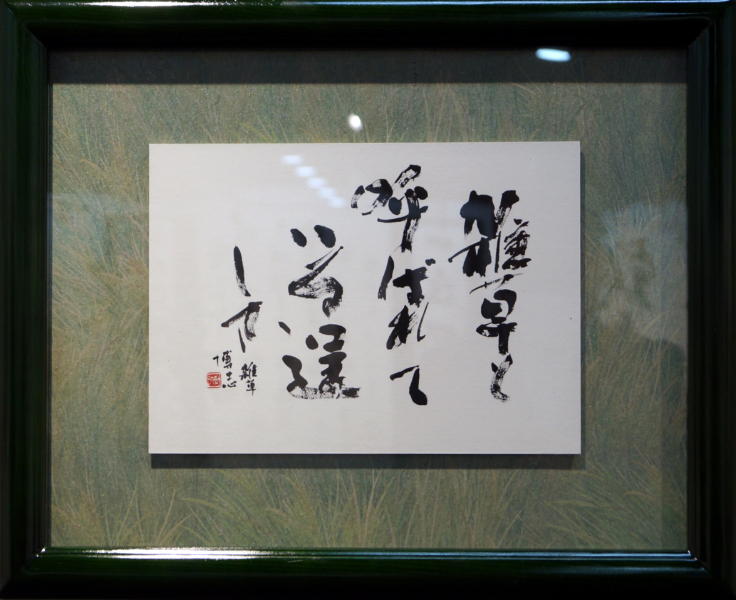 雑草と
呼ばれて
いる逞
しさ
雑草
博志